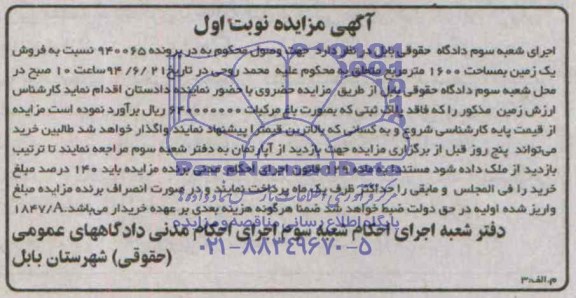 آگهی مزایده نوبت اول
اجرای شعبه سوم دادگاه حقوقی بابل در نظر دارد جهت وصول محکوم به در پرونده ۹۴۰۰۶۵ نسبت به فروش
یک زمین بمساحت ۱۶۰۰ مترمربع متعلق به محکوم علیه محمد روحی در تاریخ ۹۴/۶/۲۱ ساعت ۱۰ صبح در
محل شعبه سوم دادگاه حقوقی بابل از طریق مزایده حضوری با حضور نماینده دادستان اقدام نماید کارشناس
ارزش زمین مذکور را که فاقد پلاک ثبتی که بصورت باغ مرکبات ریال برآورد نموده است مزایده
از قیمت پایه کارشناسی شروع و به کسانی که بالاترین قیمت را پیشنهاد نمایند واگذار خواهد شد طالبین خرید
می‌تواند پنج روز قبل از برگزاری مزایده جهت بازدید از آپارتمان به دفتر شعبه سوم مراجعه نمایند تا ترتیب
بازدید از ملک داده شود مستندا به ماده قانون اجرای احکام مدنی برنده مزایده باید ۱۴۰ درصد مبلغ
خرید را فی المجلس و مابقی را حداکثر ظرف یک ماه پرداخت نمایند و در صورت انصراف برنده مزایده مبلغ
واریز شده اولیه در حق دولت ضبط خواهد شد ضمنا هرگونه هزینه بعدی بر عهده خریدار می‌باشد. ۱۸۴۷/A
پایگاه اطلاع رسانی مناقصه و مزایده
دفتر شعبه اجرای احکام شعبه سوم اجرای احکام مدنی دادگاههای عمومی
۰۲۱-۸۸۳۴۹۶۷۰-۵
(حقوقی) شهرستان بابل
م.الف:۳